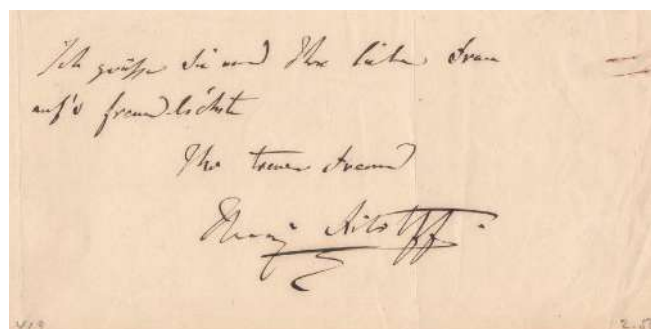 Ich grüße Sie und Ihre liebe Frau
auf's freundlichste
Ihr treuer Freund
Henry Litolff.